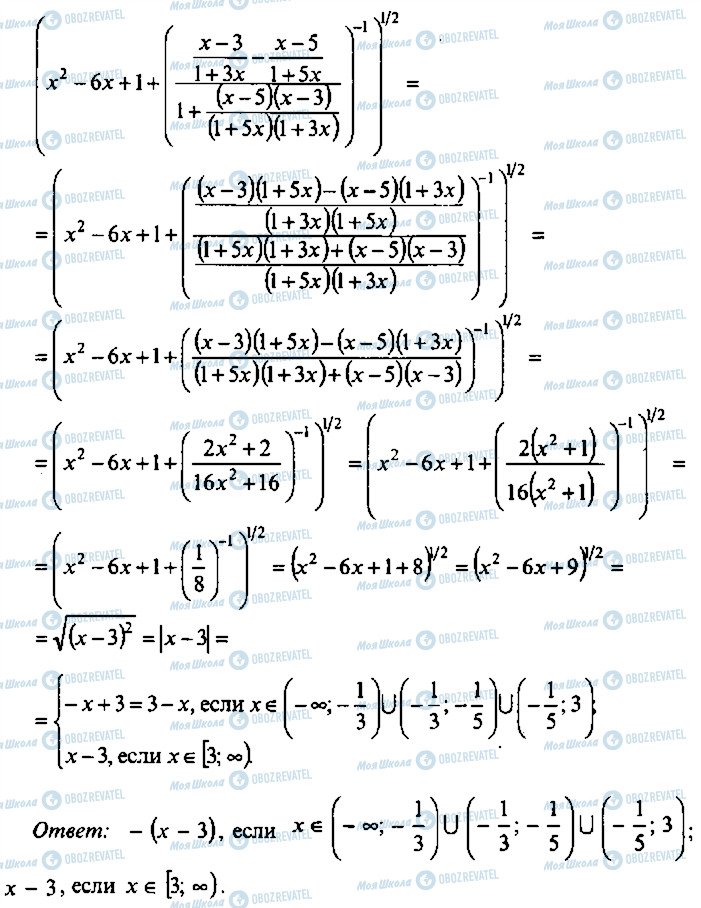 (x² − 6x + 1 + (((x − 3)/(1 + 3x) − (x − 5)/(1 + 5x))/(1 + ((x − 5)(x − 3))/((1 + 5x)(1 + 3x))))⁻¹)^(1/2) =
= (x² − 6x + 1 + ((((x − 3)(1 + 5x) − (x − 5)(1 + 3x))/((1 + 3x)(1 + 5x)))/(((1 + 5x)(1 + 3x) + (x − 5)(x − 3))/((1 + 5x)(1 + 3x))))⁻¹)^(1/2) =
= (x² − 6x + 1 + (((x − 3)(1 + 5x) − (x − 5)(1 + 3x))/((1 + 5x)(1 + 3x) + (x − 5)(x − 3)))⁻¹)^(1/2) =
= (x² − 6x + 1 + ((2x² + 2)/(16x² + 16))⁻¹)^(1/2) = (x² − 6x + 1 + ((2(x² + 1))/(16(x² + 1)))⁻¹)^(1/2) =
= (x² − 6x + 1 + (1/8)⁻¹)^(1/2) = (x² − 6x + 1 + 8)^(1/2) = (x² − 6x + 9)^(1/2) =
= √((x − 3)²) = |x − 3| =
= { − x + 3 = 3 − x, если x ∈ (− ∞; − 1/3) ∪ (− 1/3; − 1/5) ∪ (− 1/5; 3);
x − 3, если x ∈ [3; ∞).
Ответ: − (x − 3), если x ∈ (− ∞; − 1/3) ∪ (− 1/3; − 1/5) ∪ (− 1/5; 3);
x − 3, если x ∈ [3; ∞).
Моя Школа OBOZREVATEL